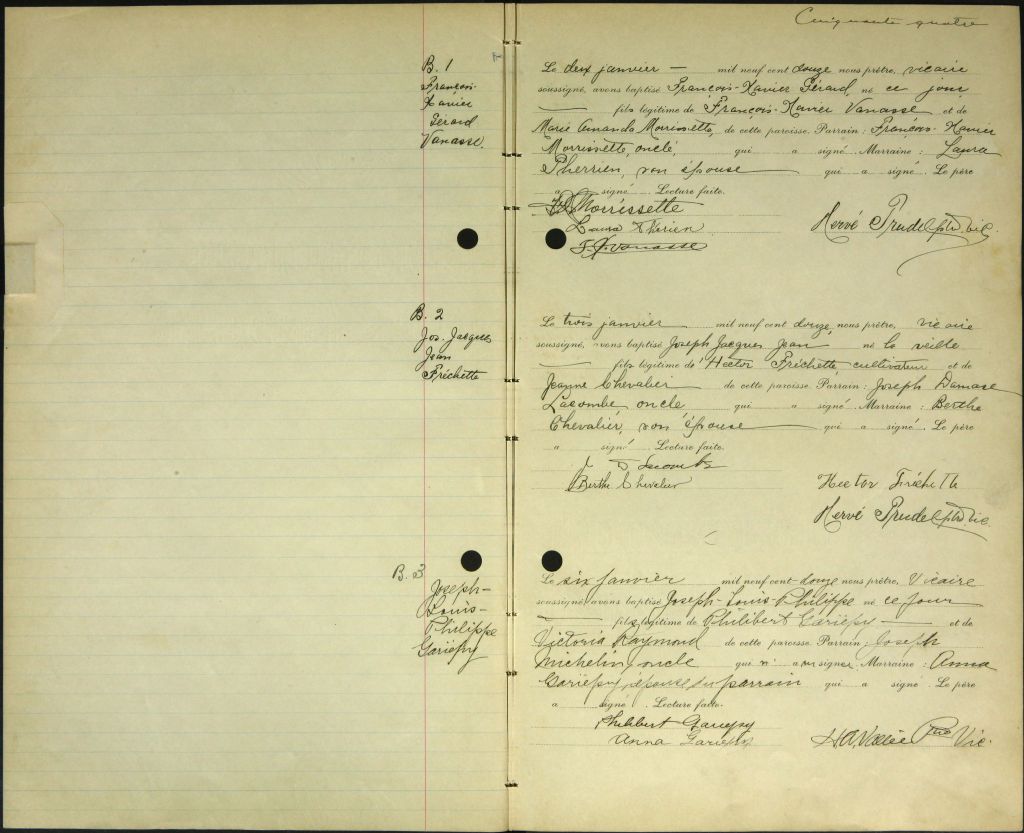 Cinquante quatre
B. 1
François-
Xavier
Gérard
Vanasse.
Le deux janvier — mil neuf cent douze nous prêtre, vicaire
soussigné, avons baptisé François-Xavier Gérard, né ce jour
fils légitime de François-Xavier Vanasse et de
Marie Amanda Morrissette, de cette paroisse. Parrain : François-Xavier
Morrissette, oncle, qui a signé. Marraine : Laura
Pherrien, son épouse qui a signé. Le père
a signé. Lecture faite.
F.X. Morrissette
Laura Therien
F. X. Vanasse
Hervé Prudel ptre. vic.
B. 2
Jos. Jacques
Jean
Fréchette
Le trois janvier mil neuf cent douze, nous prêtre, vicaire
soussigné, avons baptisé Joseph Jacques Jean né la veille
fils légitime de Hector Fréchette, cultivateur et de
Jeanne Chevalier de cette paroisse. Parrain : Joseph Damase
Lacombe oncle qui a signé. Marraine : Berthe
Chevalier, son épouse qui a signé. Le père
a signé. Lecture faite.
J D Lacombe
Berthe Chevalier
Hector Fréchette
Hervé Prudel ptre vic.
B. 3
Joseph-
Louis-
Philippe
Gariépy
Le six janvier mil neuf cent douze nous prêtre, Vicaire
soussigné, avons baptisé Joseph-Louis-Philippe né ce jour
fils légitime de Philibert Gariépy et de
Victoria Raymond de cette paroisse. Parrain : Joseph
Michelin, oncle qui n'a su signer. Marraine : Anna
Gariépy, épouse du parrain qui a signé. Le père
a signé. Lecture faite.
Philibert Gariepy
Anna Gariepy
H.A. Vallée Ptre Vic.